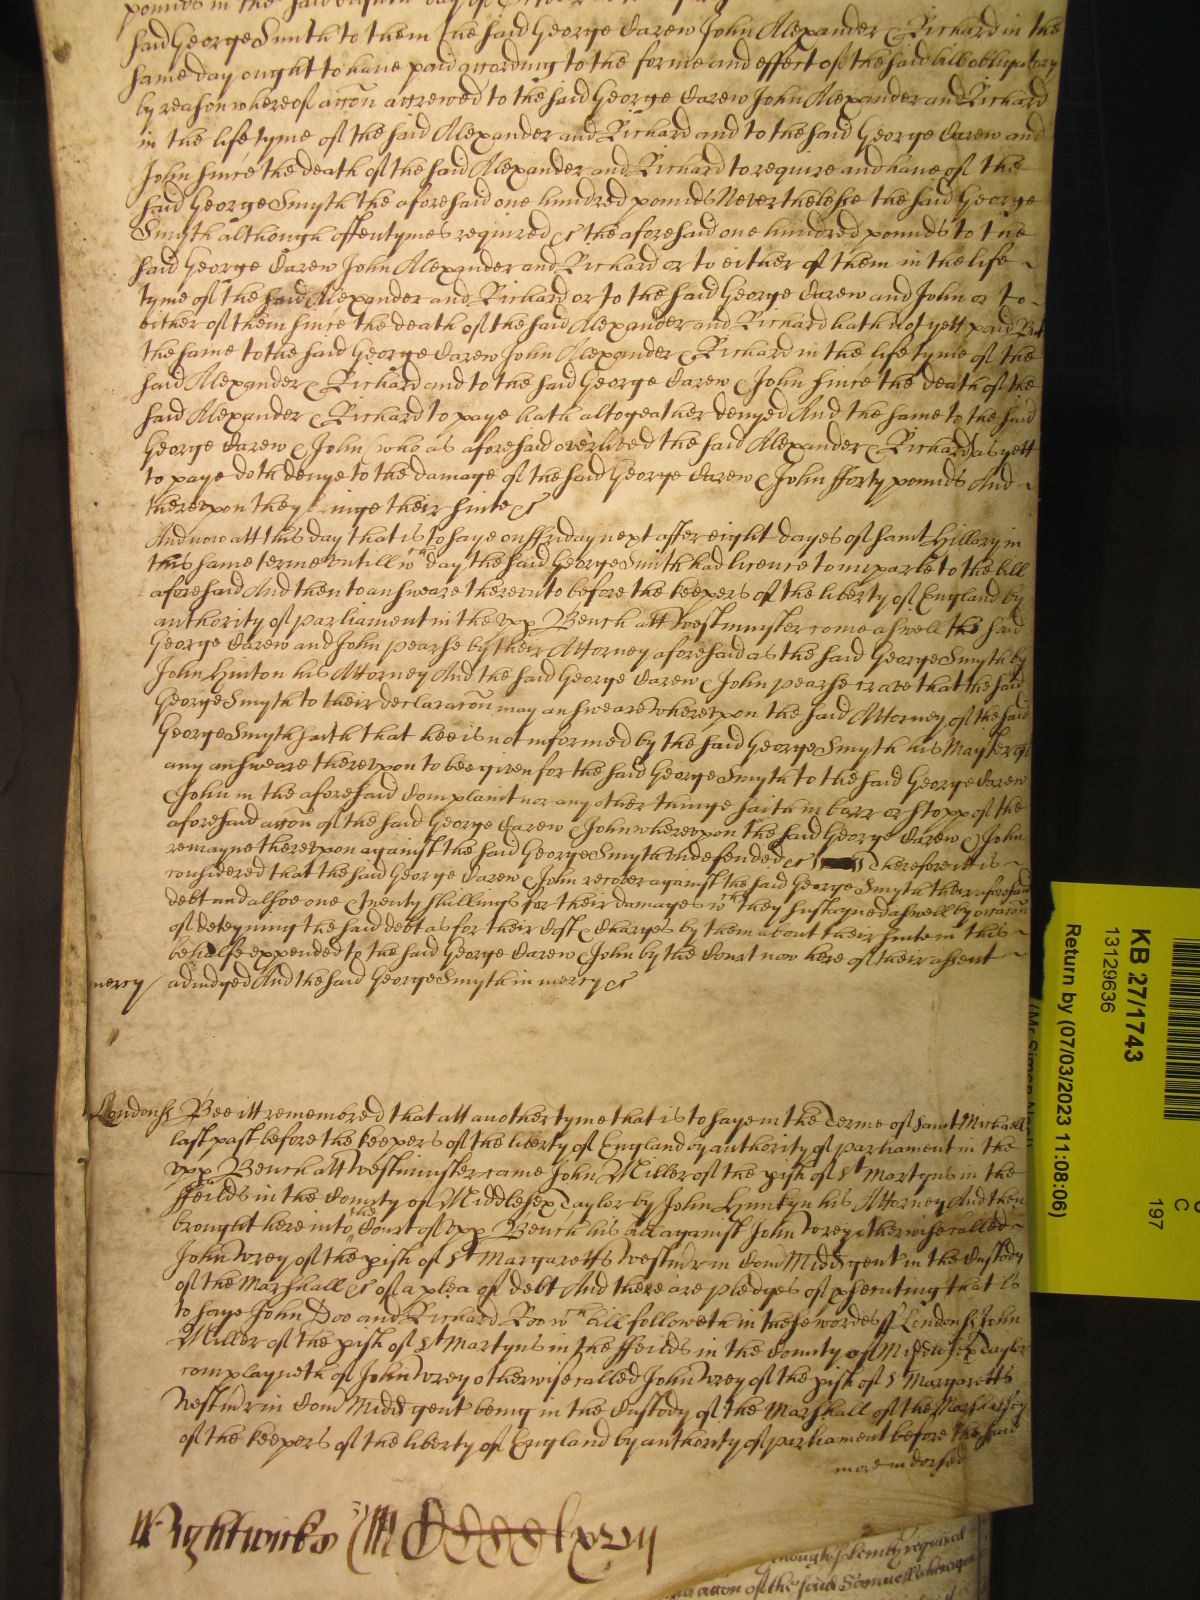 pounds in the said eighth day of
said George Smith to them the said George Carew John Alexander & Richard in the
same day ought to have paid according to the forme and effect of the said bill obligatory
by reason whereof accōn accrewed to the said George Carew John Alexander and Richard
in the life tyme of the said Alexander and Richard and to the said George Carew and
John since the death of the said Alexander and Richard to require and have of the
said George Smyth the aforesaid one hundred pounds Neverthelesse the said George
Smyth although oftentymes required &c the aforesaid one hundred pounds to the
said George Carew John Alexander and Richard or to either of them in the life
tyme of the said Alexander and Richard or to the said George Carew and John or to
either of them since the death of the said Alexander and Richard hath not yett paid But
the same to the said George Carew John Alexander & Richard in the life tyme of the
said Alexander & Richard and to the said George Carew & John since the death of the
said Alexander & Richard to paye hath altogeather denyed And the same to the said
George Carew & John (who as aforesaid overlived the said Alexander & Richard) as yett
to paye doth denye to the damage of the said George Carew & John fforty pounds And
thereupon they bringe their suite &c
And now att this day that is to saye on ffriday next after eight dayes of Saint Hillary in
this same terme untill wch day the said George Smith had licence to imparle to the bill
aforesaid And then to answeare thereunto before the keepers of the liberty of England by
authority of parliament in the upp Bench att Westminster come aswell the said
George Carew and John Pearse by their Attorney aforesaid as the said George Smyth by
John Hinton his Attorney And the said George Carew & John Pearse crave that the said
George Smyth to their declaracōn may answeare whereupon the said Attorney of the said
George Smyth saith that hee is not informed by the said George Smyth his Master of
any answeare thereupon to bee given for the said George Smyth to the said George Carew
& John in the aforesaid Complaint nor any other thinge saith in barr or stopp of the
aforesaid accōn of the said George Carew & John whereupon the said George Carew & John
remayne thereupon against the said George Smyth undefended &c Therefore itt is
considered that the said George Carew & John recover against the said George Smyth their aforesaid
debt and alsoe one & twenty shillings for their damages wch they sustayned aswell by occasion
of deteyning the said debt as for their Cost & Charges by them about their suite in this
behalfe expended to the said George Carew & John by the Court now here of their assent
mercy / adiudged And the said George Smyth in mercy &c
London ss Bee itt remembred that att another tyme that is to saye in the Terme of Saint Michaell
last past before the keepers of the liberty of England by authority of parliament in the
upp Bench att Westminster came John Miller of the pish of St Martyns in the
ffeilds in the County of Middlesex Taylor by John Huntyn his Attorney And then
brought here into the Court of upp Bench his bill against John Wrey otherwise called
John Wrey of the pish of St Margaretts Westmr in Com Midd gent in the Custody
of the Marshall &c of a plea of debt And there are pledges of psecuting that is
to saye John Doo and Richard Roo wch bill followeth in these wordes ss London ss John
Miller of the pish of St Martyns in the ffeilds in the County of Middlesex Taylor
complayneth of John Wrey otherwise called John Wrey of the pish of St Margaretts
Westmr in Com Midd gent being in the Custody of the Marshall of the Marshalsey
of the keepers of the liberty of England by authority of parliament before the said
more indorsed
Wightwicks
KB 27/1743
13129636
Return by (07/03/2023 11:08:06)
C
197
required
accon of the said Samuell whereupon